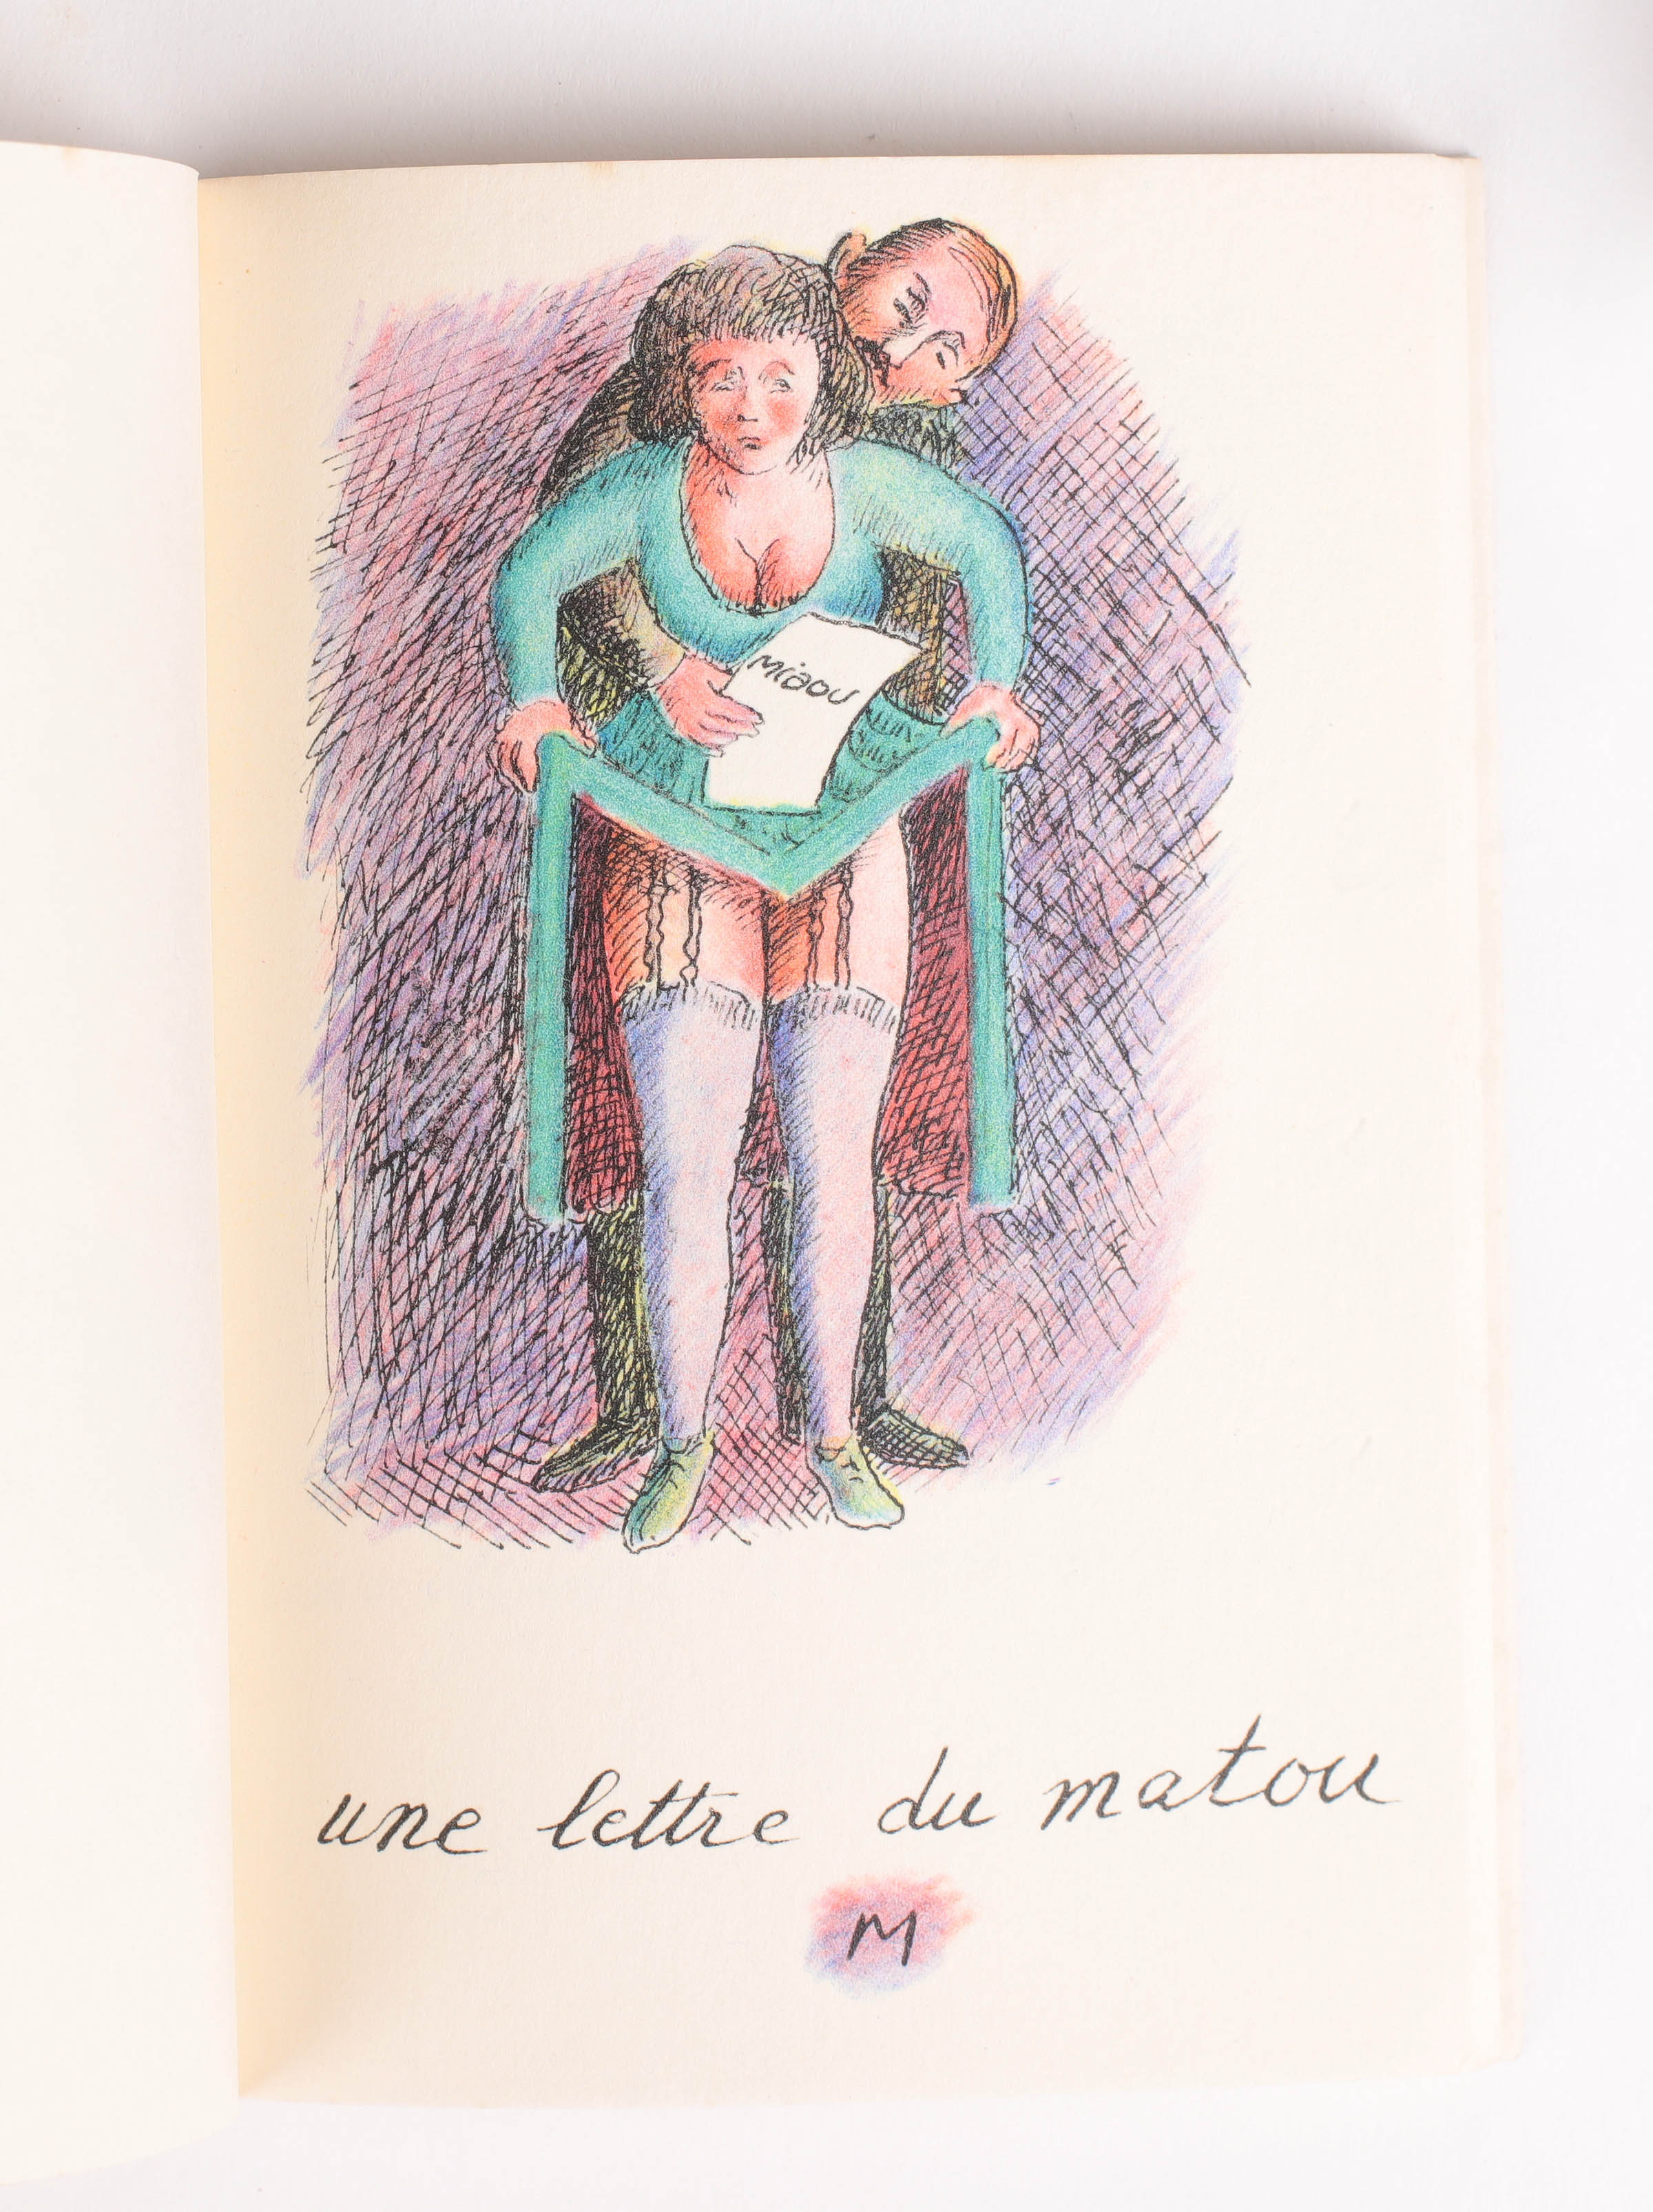 Miaou
une lettre du matou
M